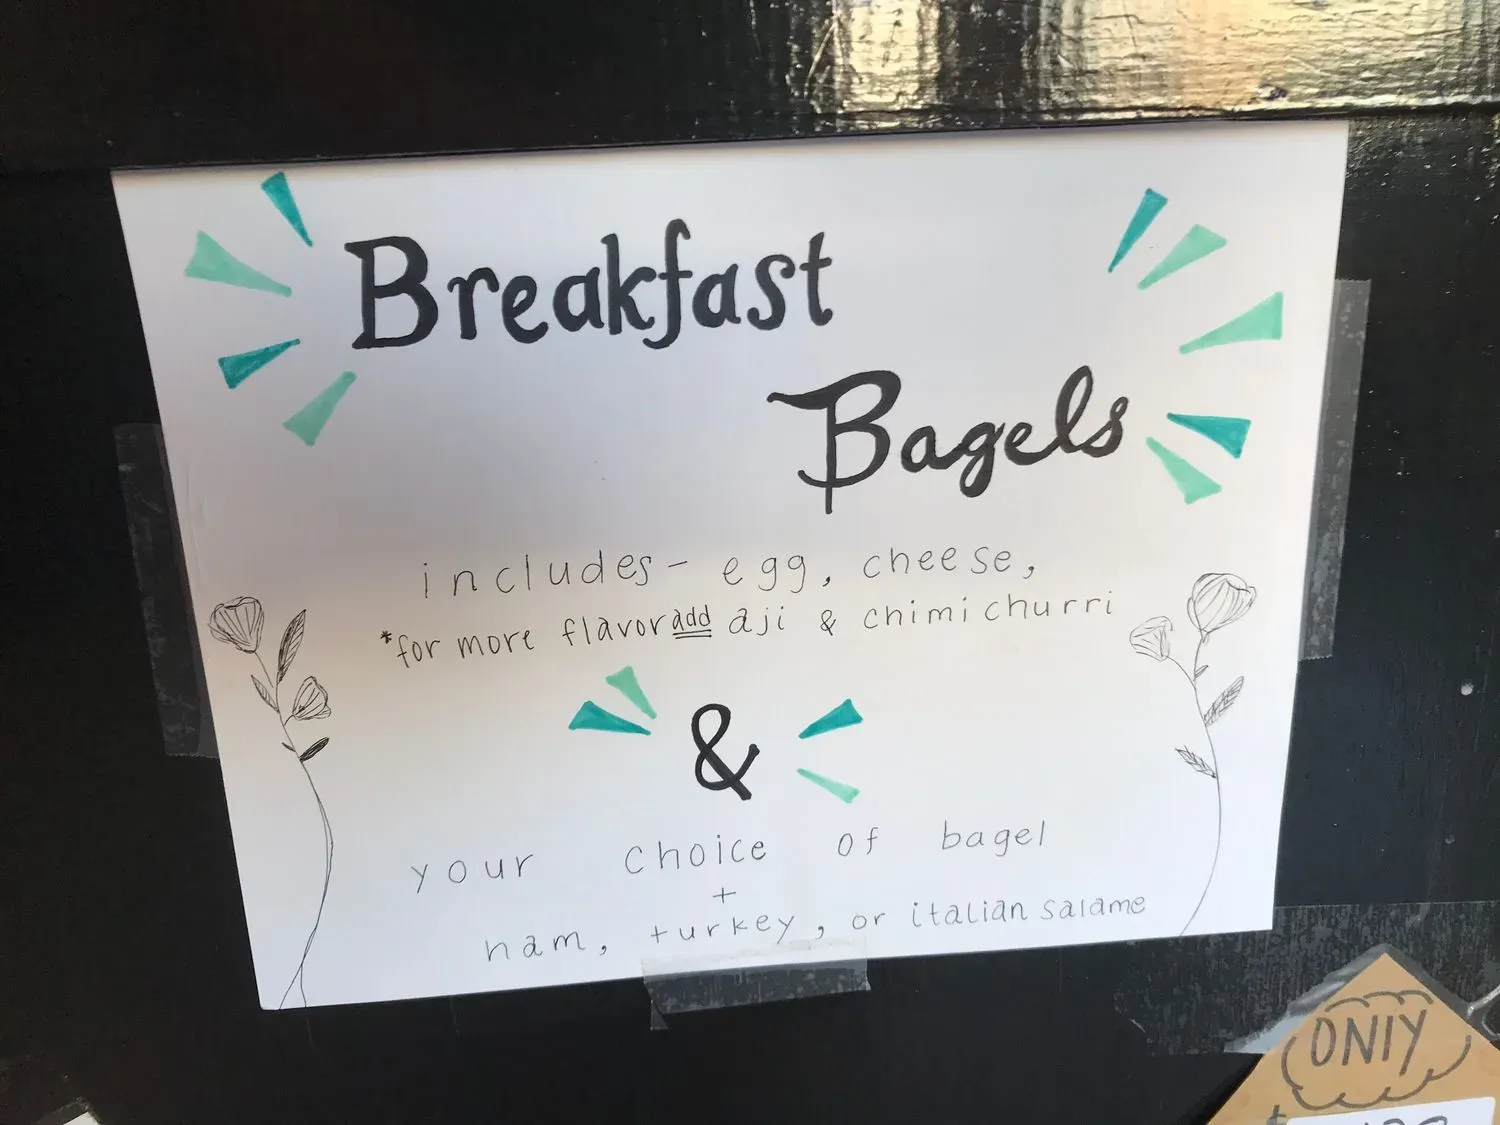 Breakfast
Bagels
includes- egg, cheese,
*for more flavor add aji & chimichurri
&
your choice of bagel
+
ham, turkey, or italian salame
ONLY